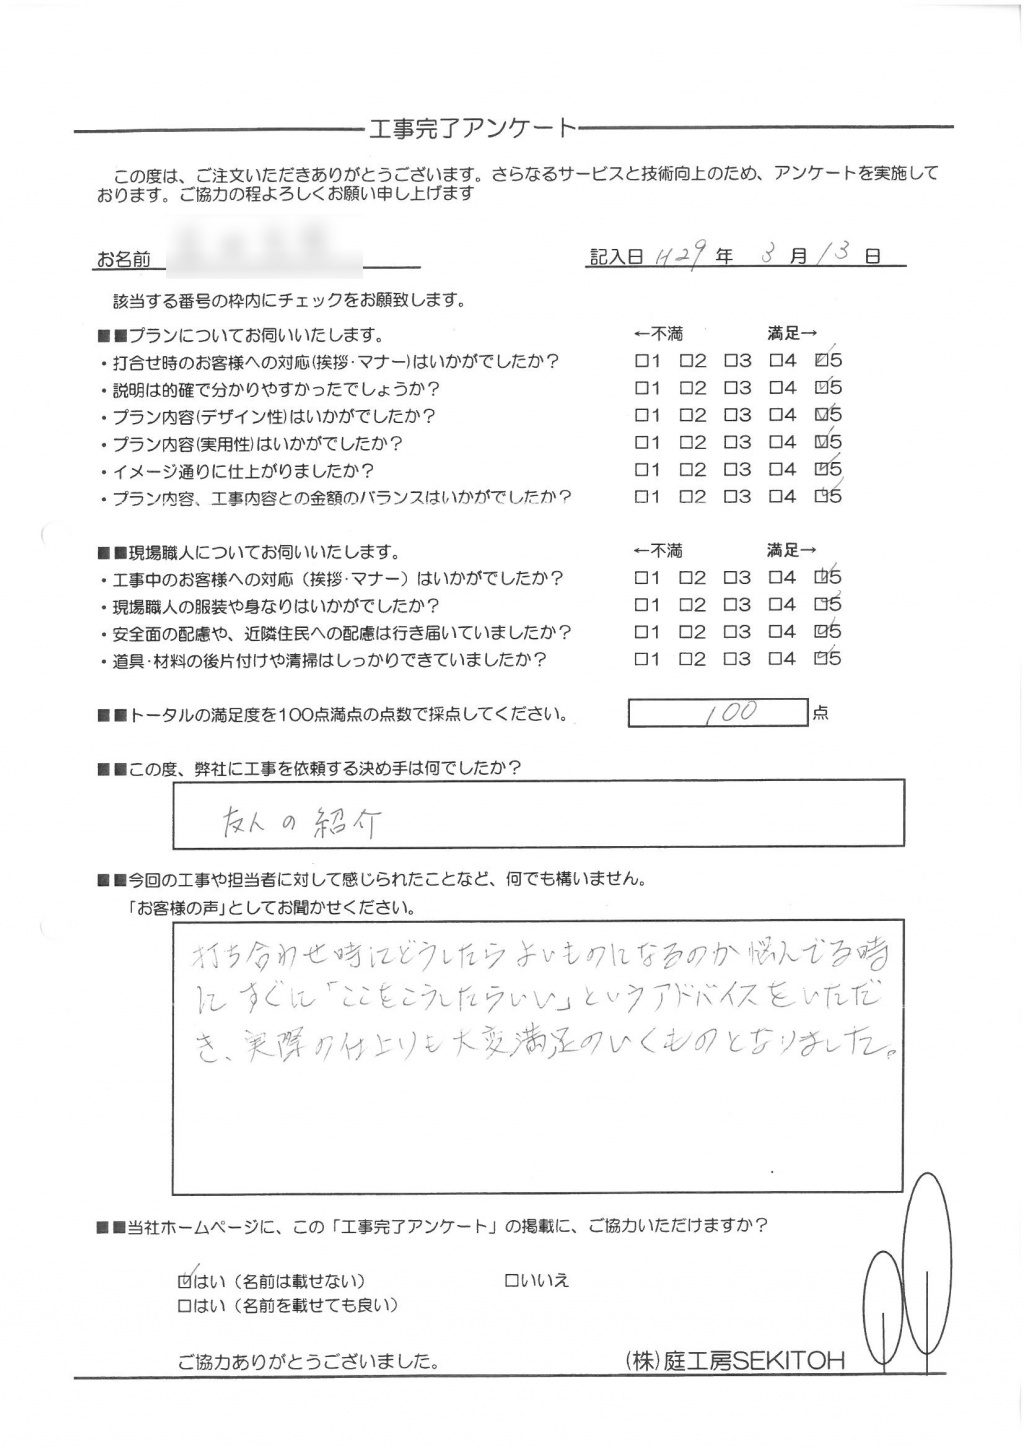 工事完了アンケート
この度は、ご注文いただきありがとうございます。さらなるサービスと技術向上のため、アンケートを実施して
おります。ご協力の程よろしくお願い申し上げます
お名前 記入日 H29 年 3 月 13 日
該当する番号の枠内にチェックをお願致します。
■■プランについてお伺いいたします。 ←不満 満足→
・打合せ時のお客様への対応(挨拶・マナー)はいかがでしたか? □1 □2 □3 □4 ☑5
・説明は的確で分かりやすかったでしょうか? □1 □2 □3 □4 ☑5
・プラン内容(デザイン性)はいかがでしたか? □1 □2 □3 □4 ☑5
・プラン内容(実用性)はいかがでしたか? □1 □2 □3 □4 ☑5
・イメージ通りに仕上がりましたか? □1 □2 □3 □4 ☑5
・プラン内容、工事内容との金額のバランスはいかがでしたか? □1 □2 □3 □4 ☑5
■■現場職人についてお伺いいたします。 ←不満 満足→
・工事中のお客様への対応(挨拶・マナー)はいかがでしたか? □1 □2 □3 □4 ☑5
・現場職人の服装や身なりはいかがでしたか? □1 □2 □3 □4 ☑5
・安全面の配慮や、近隣住民への配慮は行き届いていましたか? □1 □2 □3 □4 ☑5
・道具・材料の後片付けや清掃はしっかりできていましたか? □1 □2 □3 □4 ☑5
■■トータルの満足度を100点満点の点数で採点してください。 100 点
■■この度、弊社に工事を依頼する決め手は何でしたか?
友人の紹介
■■今回の工事や担当者に対して感じられたことなど、何でも構いません。
「お客様の声」としてお聞かせください。
打ち合わせ時にどうしたらよいものになるのか悩んでる時
にすぐに「ここをこうしたらいい」というアドバイスをいただ
き、実際の仕上りも大変満足のいくものとなりました。
■■当社ホームページに、この「工事完了アンケート」の掲載に、ご協力いただけますか?
☑はい(名前は載せない) □いいえ
□はい(名前を載せても良い)
ご協力ありがとうございました。 (株)庭工房SEKITOH